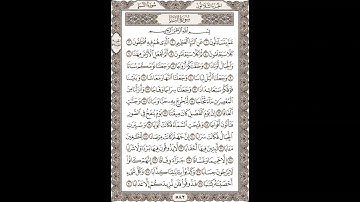 الجزء الثلاثون سورة النبإ
سورة النبإ
بسم الله الرحمن الرحيم
عم يتساءلون ١ عن النبإ العظيم ٢ الذي هم فيه مختلفون ٣
كلا سيعلمون ٤ ثم كلا سيعلمون ٥ ألم نجعل الأرض مهادا ٦
والجبال أوتادا ٧ وخلقناكم أزواجا ٨ وجعلنا نومكم سباتا ٩
وجعلنا الليل لباسا ١٠ وجعلنا النهار معاشا ١١ وبنينا فوقكم
سبعا شدادا ١٢ وجعلنا سراجا وهاجا ١٣ وأنزلنا من
المعصرات ماء ثجاجا ١٤ لنخرج به حبا ونباتا ١٥ وجنات
ألفافا ١٦ إن يوم الفصل كان ميقاتا ١٧ يوم ينفخ في الصور
فتأتون أفواجا ١٨ وفتحت السماء فكانت أبوابا ١٩ وسيرت
الجبال فكانت سرابا ٢٠ إن جهنم كانت مرصادا ٢١ للطاغين
مآبا ٢٢ لابثين فيها أحقابا ٢٣ لا يذوقون فيها بردا ولا شرابا ٢٤
إلا حميما وغساقا ٢٥ جزاء وفاقا ٢٦ إنهم كانوا لا
يرجون حسابا ٢٧ وكذبوا بآياتنا كذابا ٢٨ وكل شيء
أحصيناه كتابا ٢٩ فذوقوا فلن نزيدكم إلا عذابا ٣٠
٥٨٢